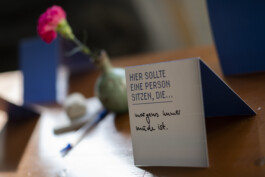 HIER SOLLTE
EINE PERSON
SITZEN, DIE...
morgens immer
müde ist.